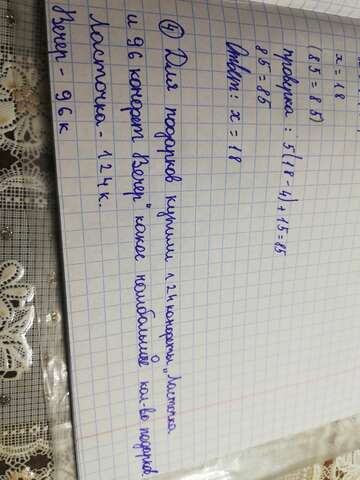 x = 18
(85 = 85)
проверка : 5(18 - 4) + 15 = 85
85 = 85
Ответ: x = 18
④ Для подарков купили 124 конфеты „Ласточка
и 96 конфет Вечер" какое наибольшее кол-во подарков.
Ласточка - 124 к.
Вечер - 96 к